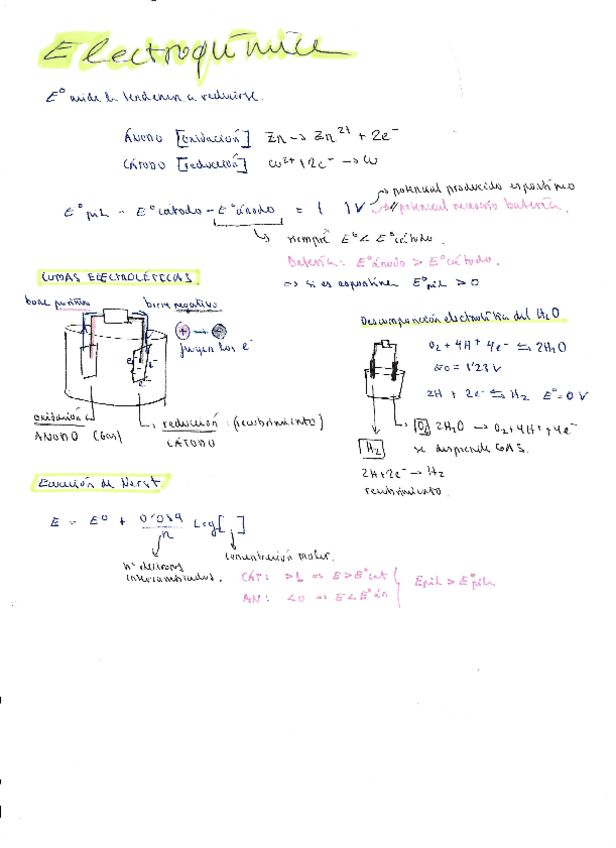 Electroquímica
E° mide la tendencia a reducirse.
ÁNODO [oxidación] Zn → Zn²⁺ + 2e⁻
CÁTODO [reducción] Cu²⁺ + 2e⁻ → Cu
potencial producido espontáneo
E° pila = E° cátodo - E° ánodo = ( ) V
potencial necesario batería.
siempre E° < E° cátodo.
Batería: E° ánodo > E° cátodo.
⇒ si es espontánea E° pila > 0
CUBAS ELECTROLÍTICAS.
borne positivo borne negativo
+ → -
fluyen los e⁻
e⁻ e⁻ e⁻
oxidación reducción (recubrimiento)
ÁNODO (Gas) CÁTODO
Descomposición electrolítica del H₂O
O₂ + 4H⁺ 4e⁻ ⇆ 2H₂O
E° = 1'23 V
2H + 2e⁻ ⇆ H₂ E° = 0 V
O₂ 2H₂O → O₂ + 4H⁺ + 4e⁻
se desprende GAS.
H₂
2H + 2e⁻ → H₂
recubrimiento.
Ecuación de Nerst
E = E° + 0'059/n Log[ ]
nº electrones intercambiados.
concentración molar.
CÁT: >1 ⇒ E > E° cat
AN: <0 ⇒ E < E° án
Epila > E° pila